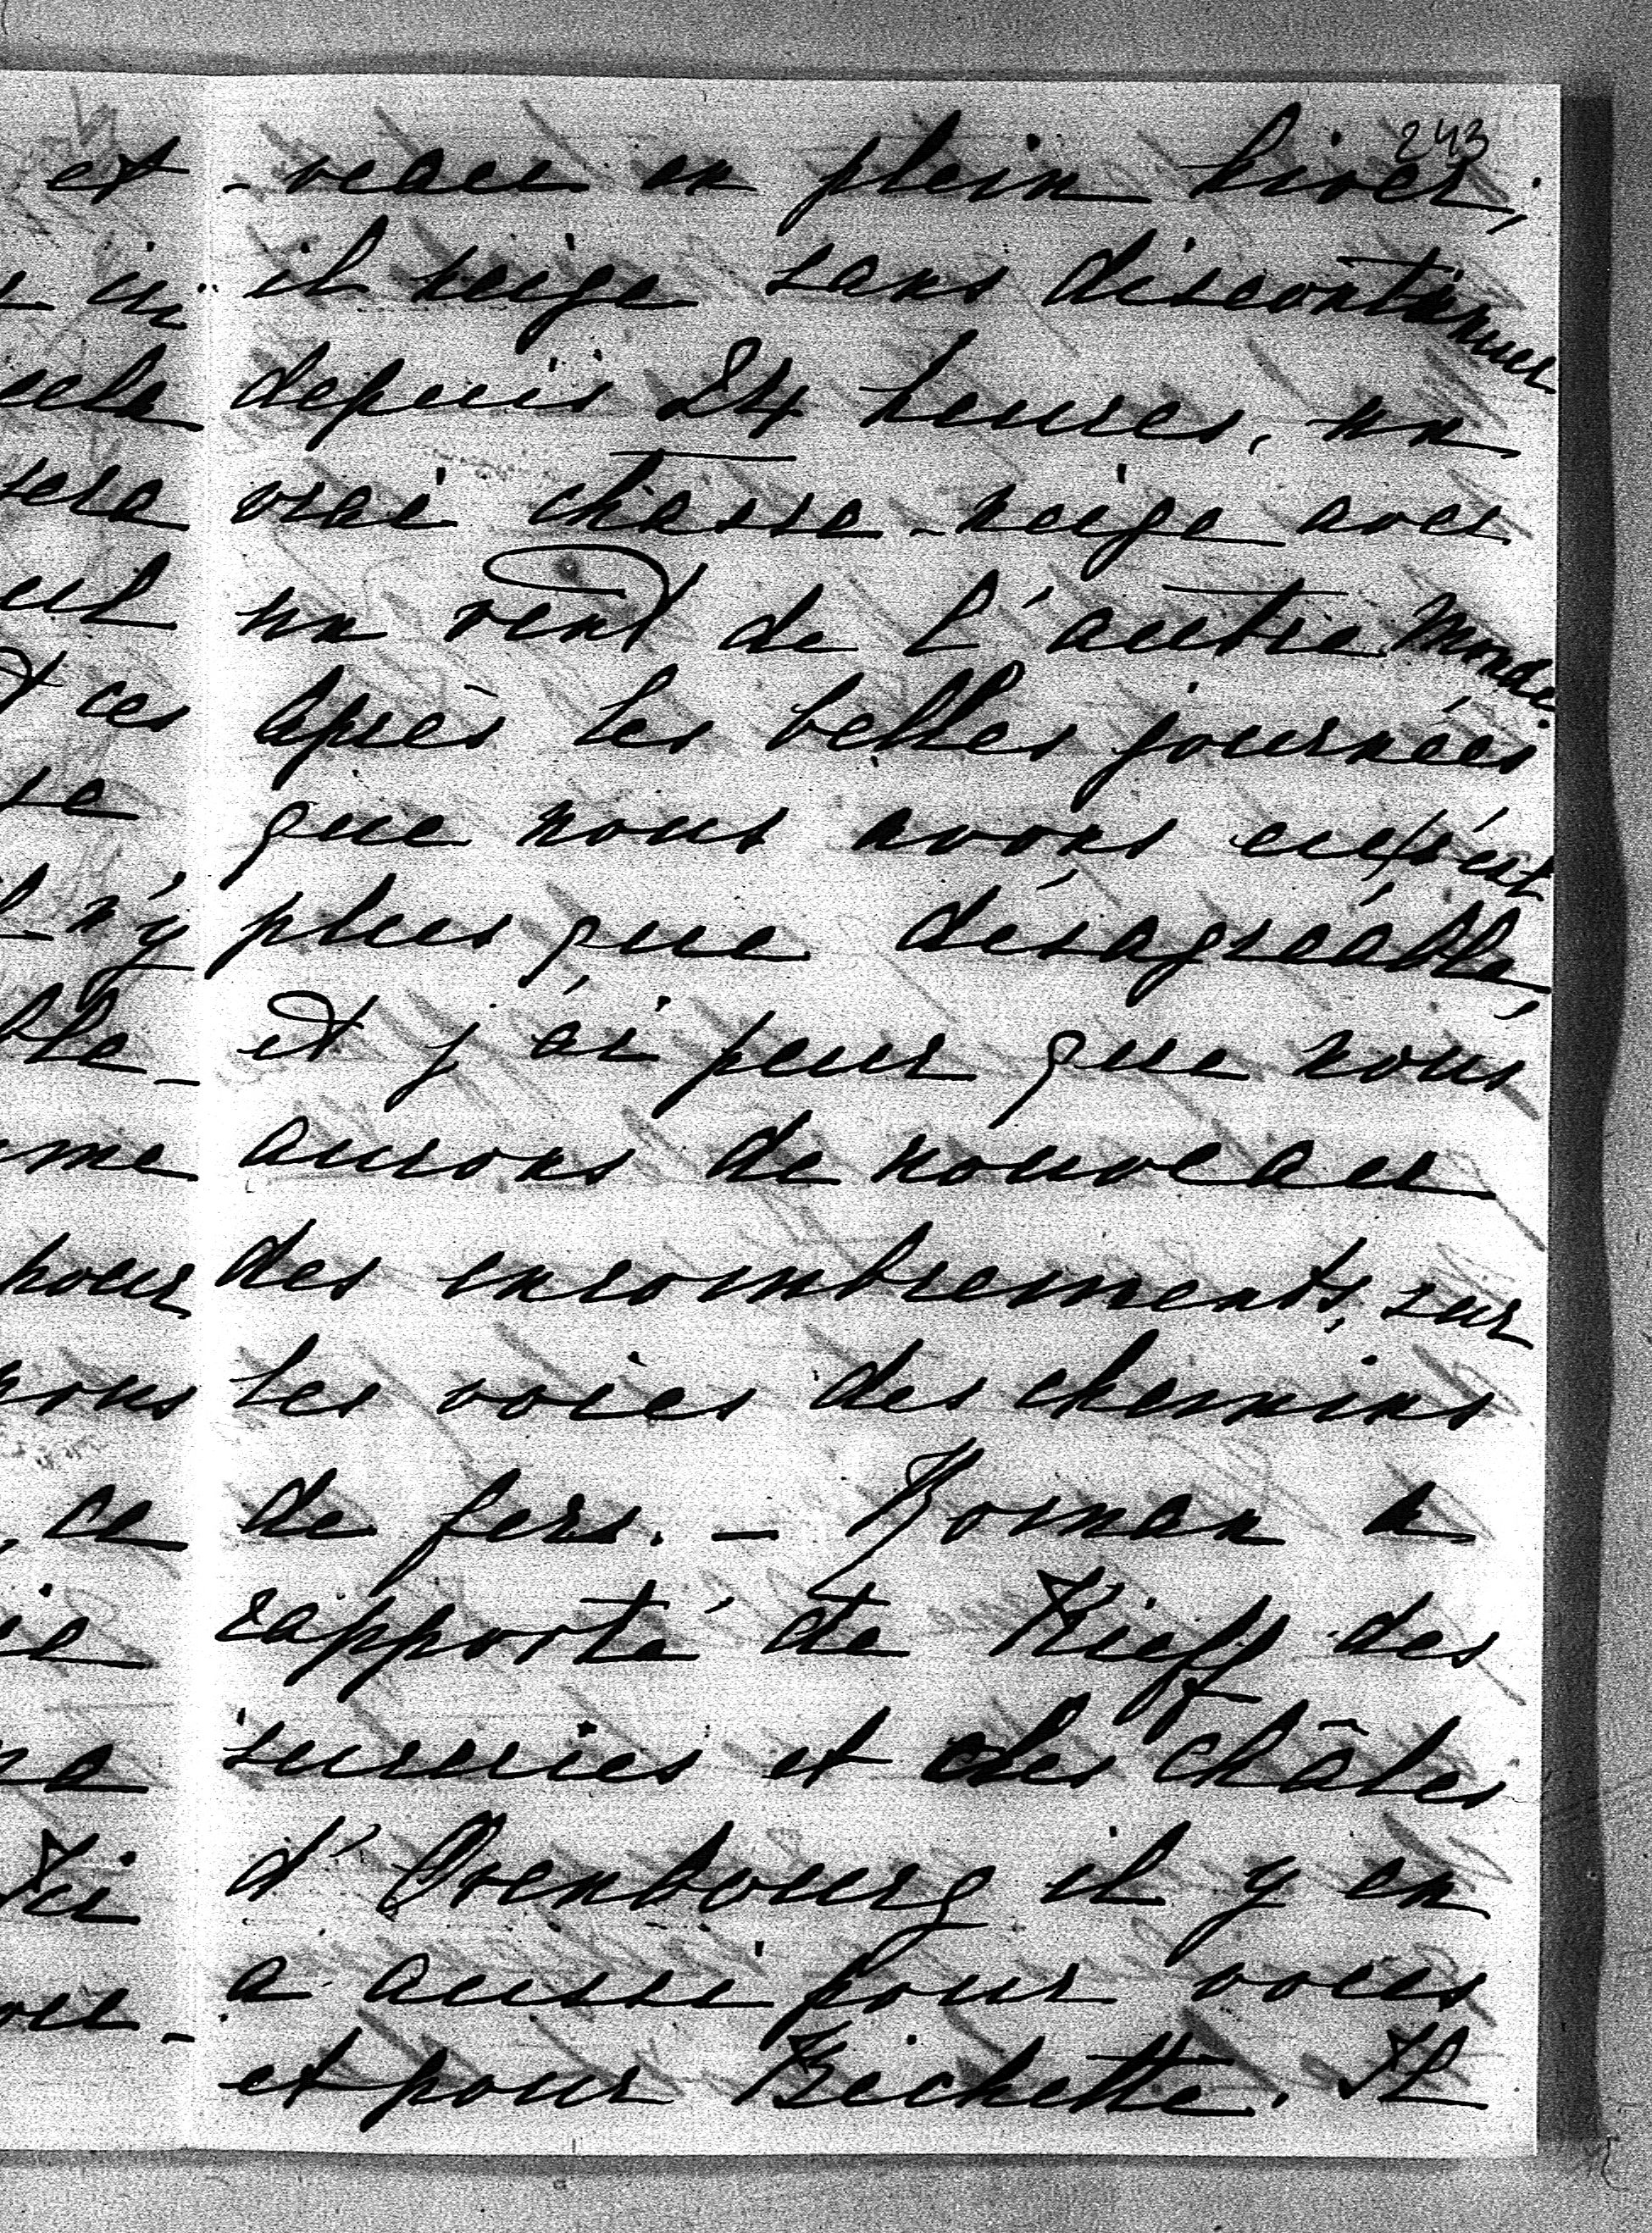 243
-veau en plein hiver,
il neige sans discontinuer
depuis 24 heures, un
vrai chasse-neige avec
un vent de l'autre monde.
Après les belles journées
que nous avons eues c'est
plus que désagréable
et j'ai peur que nous
aurons de nouveau
des encombrements sur
les voies des chemins
de fers. — Roman a
rapporté de Kieff des
sucreries et des châles
d'Orenbourg il y en
a aussi pour vous
et pour Bichette. Il
et
cela
sera
ces
se
n'y
me
pour
nous
ce